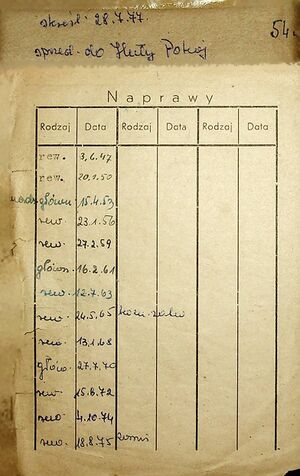 skreśl. 28.7.77.
sprzed. do Huty Pokój
Naprawy
Rodzaj Data Rodzaj Data Rodzaj Data
rew. 3.6.47
rew. 20.1.50
główn. 15.4.53
rew. 23.1.56
rew. 27.2.59
główn. 16.2.61
rew. 12.7.63
rew. 24.5.65
rew. 13.1.68
główn. 27.7.70
rew. 15.8.72
rew. 4.10.74
rew. 18.8.75